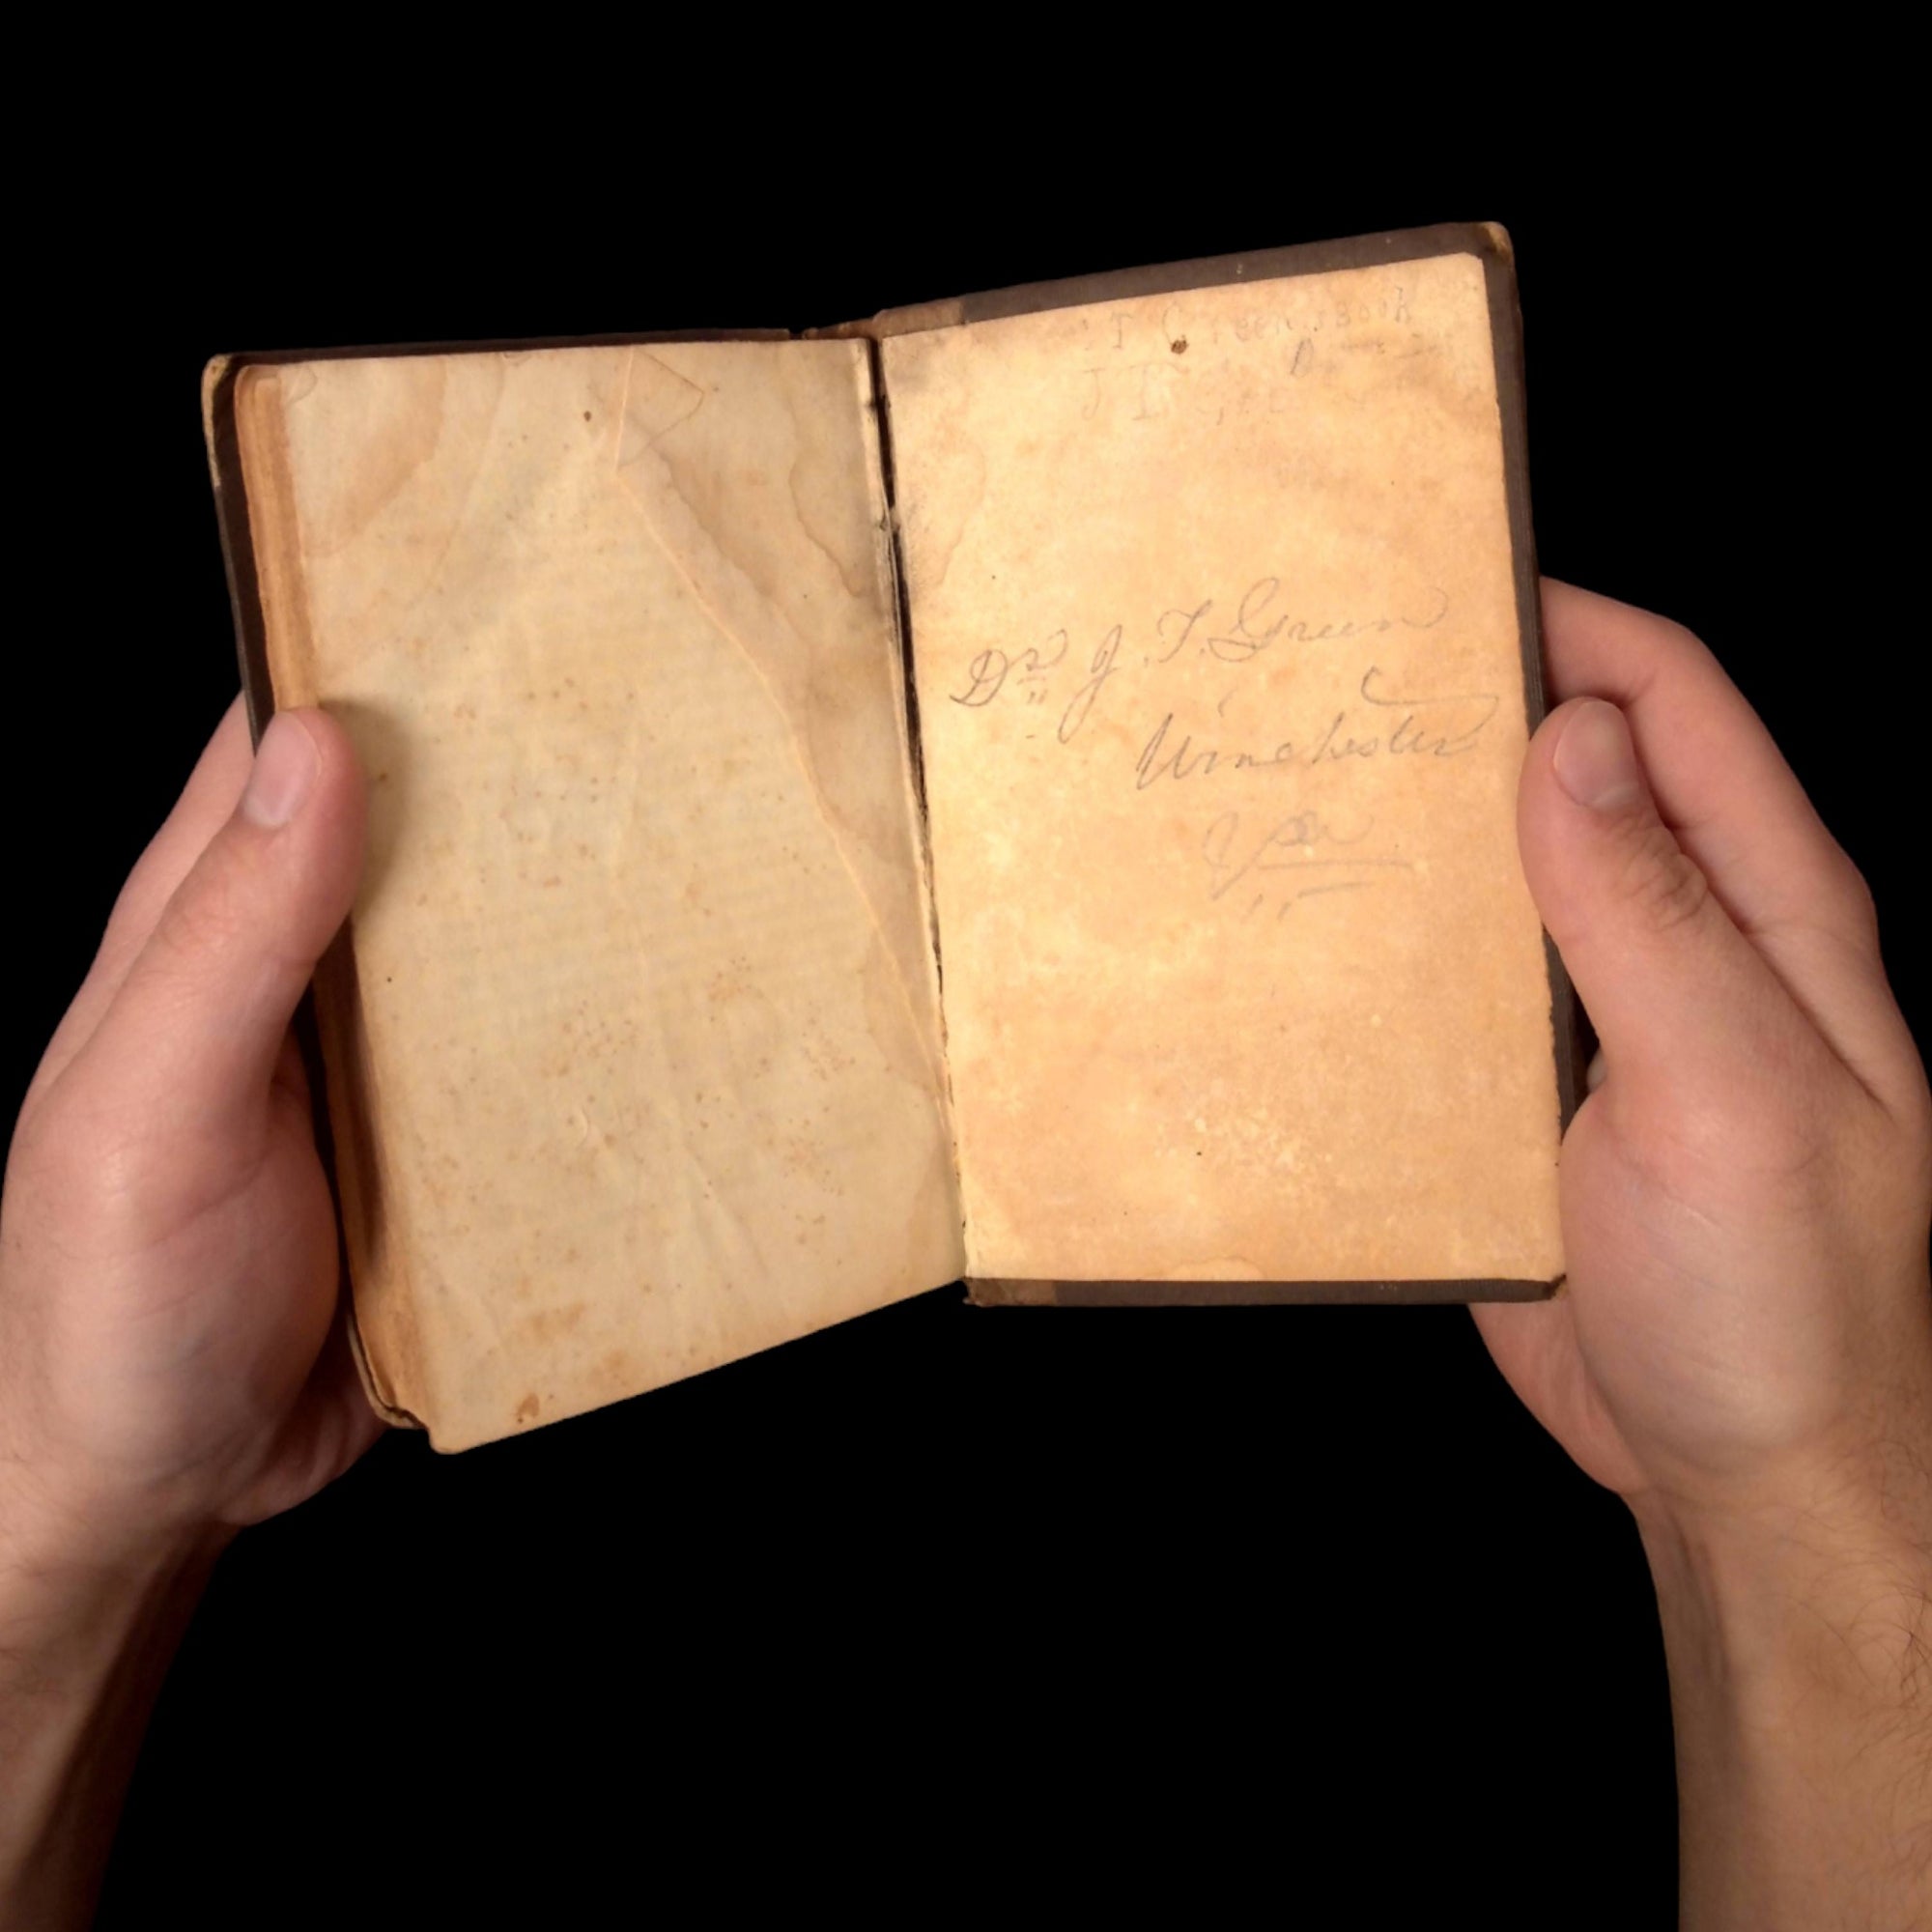 J T Green's Book
J T Gre
Dr J. T. Green
Winchester